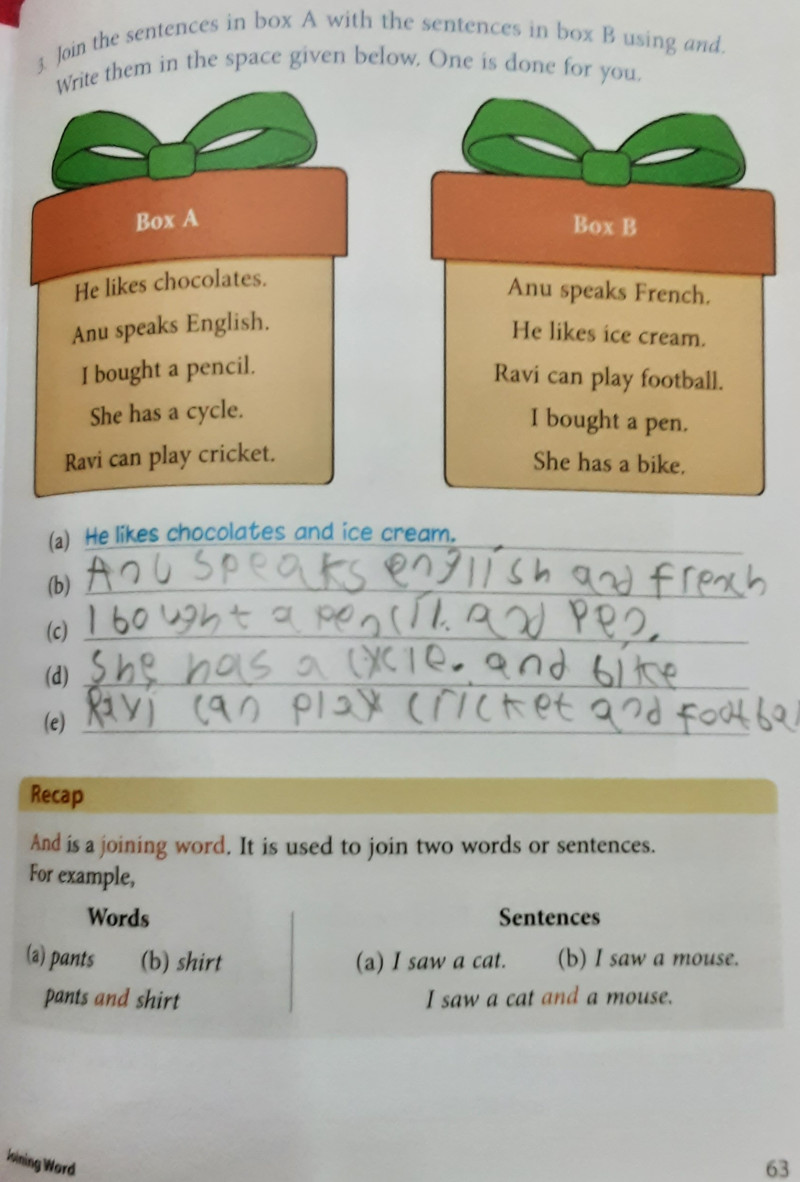 3. Join the sentences in box A with the sentences in box B using and.
Write them in the space given below. One is done for you.
Box A
He likes chocolates.
Anu speaks English.
I bought a pencil.
She has a cycle.
Ravi can play cricket.
Box B
Anu speaks French.
He likes ice cream.
Ravi can play football.
I bought a pen.
She has a bike.
(a) He likes chocolates and ice cream.
(b) Anu speaks english and french
(c) I bought a pencil. and Pen.
(d) She has a cycle. and bike
(e) Ravi can play cricket and footbal
Recap
And is a joining word. It is used to join two words or sentences.
For example,
Words
(a) pants (b) shirt
pants and shirt
Sentences
(a) I saw a cat. (b) I saw a mouse.
I saw a cat and a mouse.
Joining Word
63